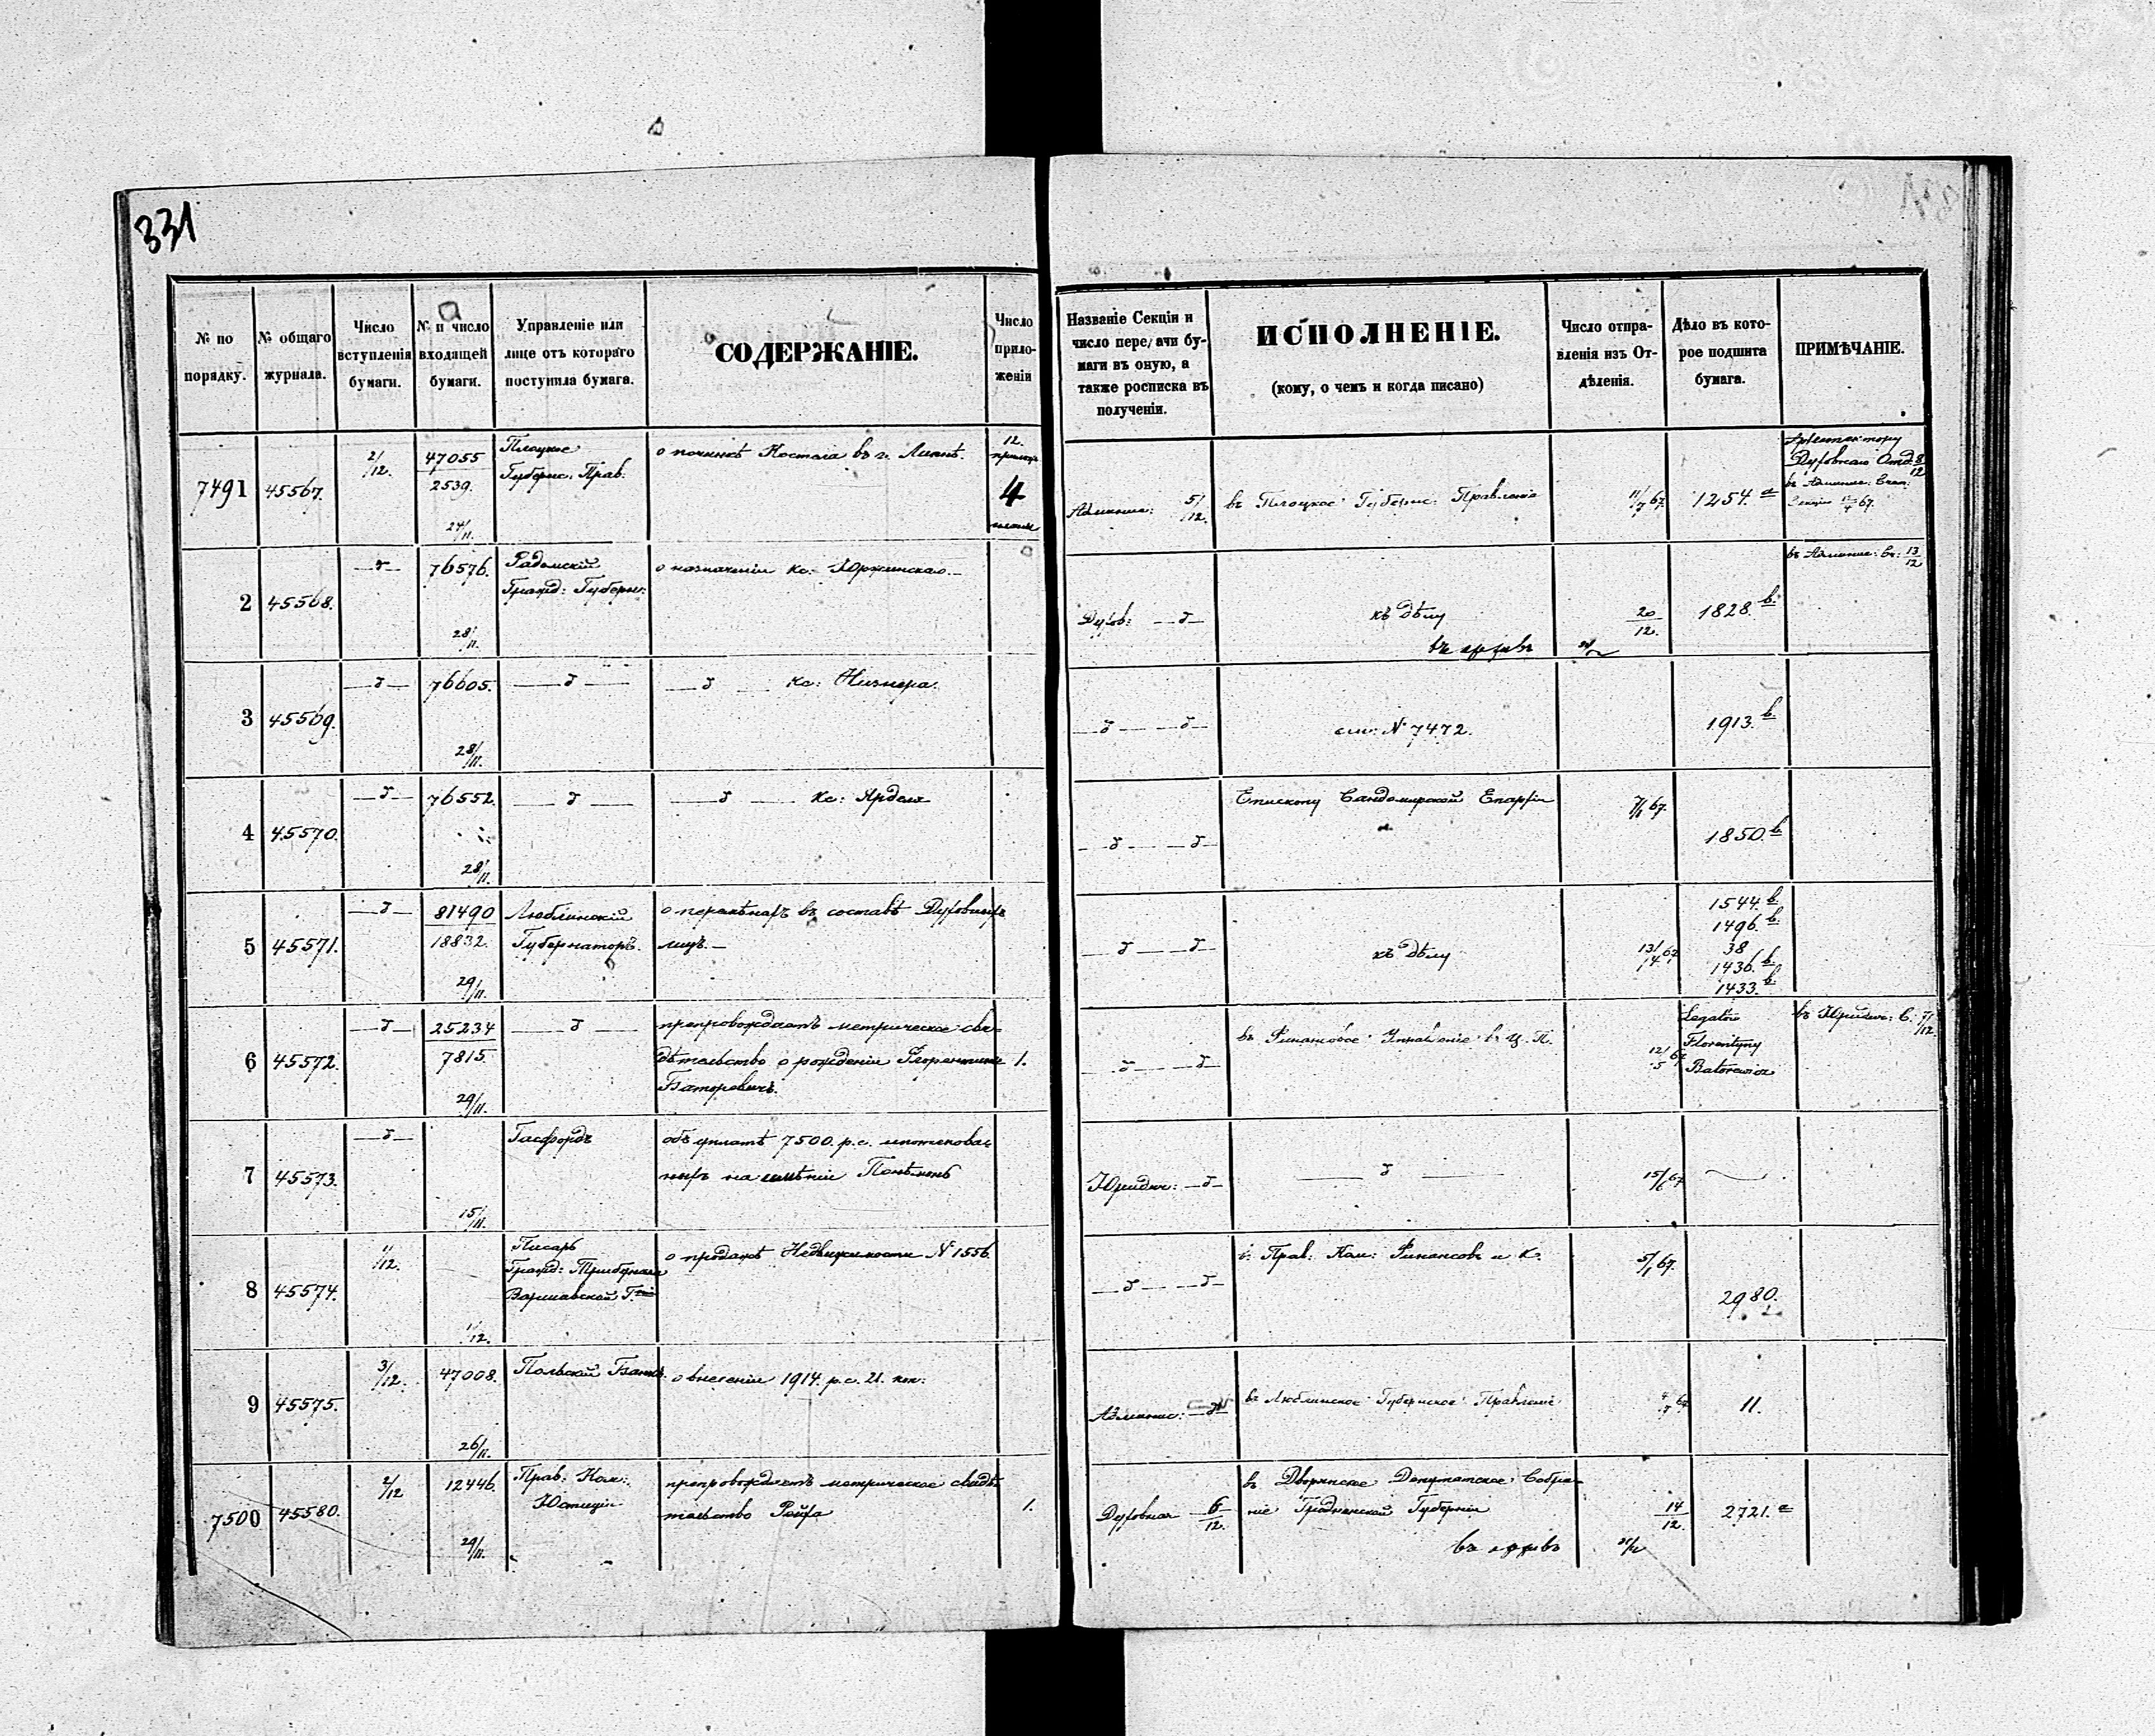 331
№ по порядку.
№ общаго журнала.
Число вступленія бумаги.
№ и число входящей бумаги.
Управленіе или лице отъ котораго поступила бумага.
СОДЕРЖАНІЕ.
Число прило- женій
Названіе Секціи и число передачи бу- маги въ оную, а также росписка въ полученіи.
ИСПОЛНЕНІЕ.
(кому, о чемъ и когда писано)
Число отпра- вленія изъ От- дѣленія.
Дѣло въ кото- рое подшита бумага.
ПРИМѢЧАНІЕ.
7491 45567. 2/12. 47055 2539. 24/11.
Плоцкое
Губернс: Прав.
о починкѣ Костела въ г. Липнѣ.
12.
4
Админис: 5/12.
въ Плоцкое Губернс: Правленіе
11/7 67.
1254. а
Духовнаго Отд. 8/12
2 45568. —д— 76576. 28/11.
Радомскій
Гражд: Губерн:
о назначеніи кс:
Духов: —д—
къ дѣлу
въ архивъ
20/12.
1828. b.
въ Админис: Ск: 13/12
3 45569. —д— 76605. 28/11.
—д—
—д— кс: Низнера.
—д— —д—
см: № 7472.
1913. b
4 45570. —д— 76552. 28/11.
—д—
—д— кс: Арделя
—д— —д—
Епископу Сандомирской Епархіи
7/1 67.
1850. b
5 45571. —д— 81490 18832. 29/11.
Люблинскій
Губернаторъ.
о перемѣнахъ въ составѣ Духовныхъ
лицъ.—
—д— —д—
къ дѣлу
1544. b.
1496. b.
38
1436. b.
1433. b
6 45572. —д— 25234 7815. 29/11.
—д—
препровождаетъ метрическое сви-
дѣтельство о рожденіи Флорентины
Баторевичъ.
1.
—д— —д—
въ Финансовое Управленіе въ Ц. П.
12/5 67
Legatów
Florentyny
Batorewicz
въ Юридич: С. 7/12.
7 45573. —д— 15/11.
Гасфордъ
объ уплатѣ 7500. р.с. ипотекован-
ныхъ на имѣніи Понѣмонь
Юридич: —д—
—д—
15/6 67
8 45574. 1/12.
Писарь
Гражд: Трибунала
Варшавской Г.
о продажѣ Недвижимости № 1556.
—д— —д—
Прав: Ком: Финансовъ и К.
5/1 67.
2980.
9 45575. 3/12. 47008. 26/11.
Польскій Банкъ.
о внесеніи 1914. р.с. 21. коп:
Админис: —д—
въ Люблинское Губернское Правленіе
11.
7500 45580. 2/12 12446. 29/11.
Прав: Ком:
Юстиціи
препровождаетъ метрическое свидѣ-
тельство
1.
Духовная 6/12.
въ Дворянское Депутатское Собра-
ніе Гродненской Губерніи
въ архивъ
14/12.
2721. а